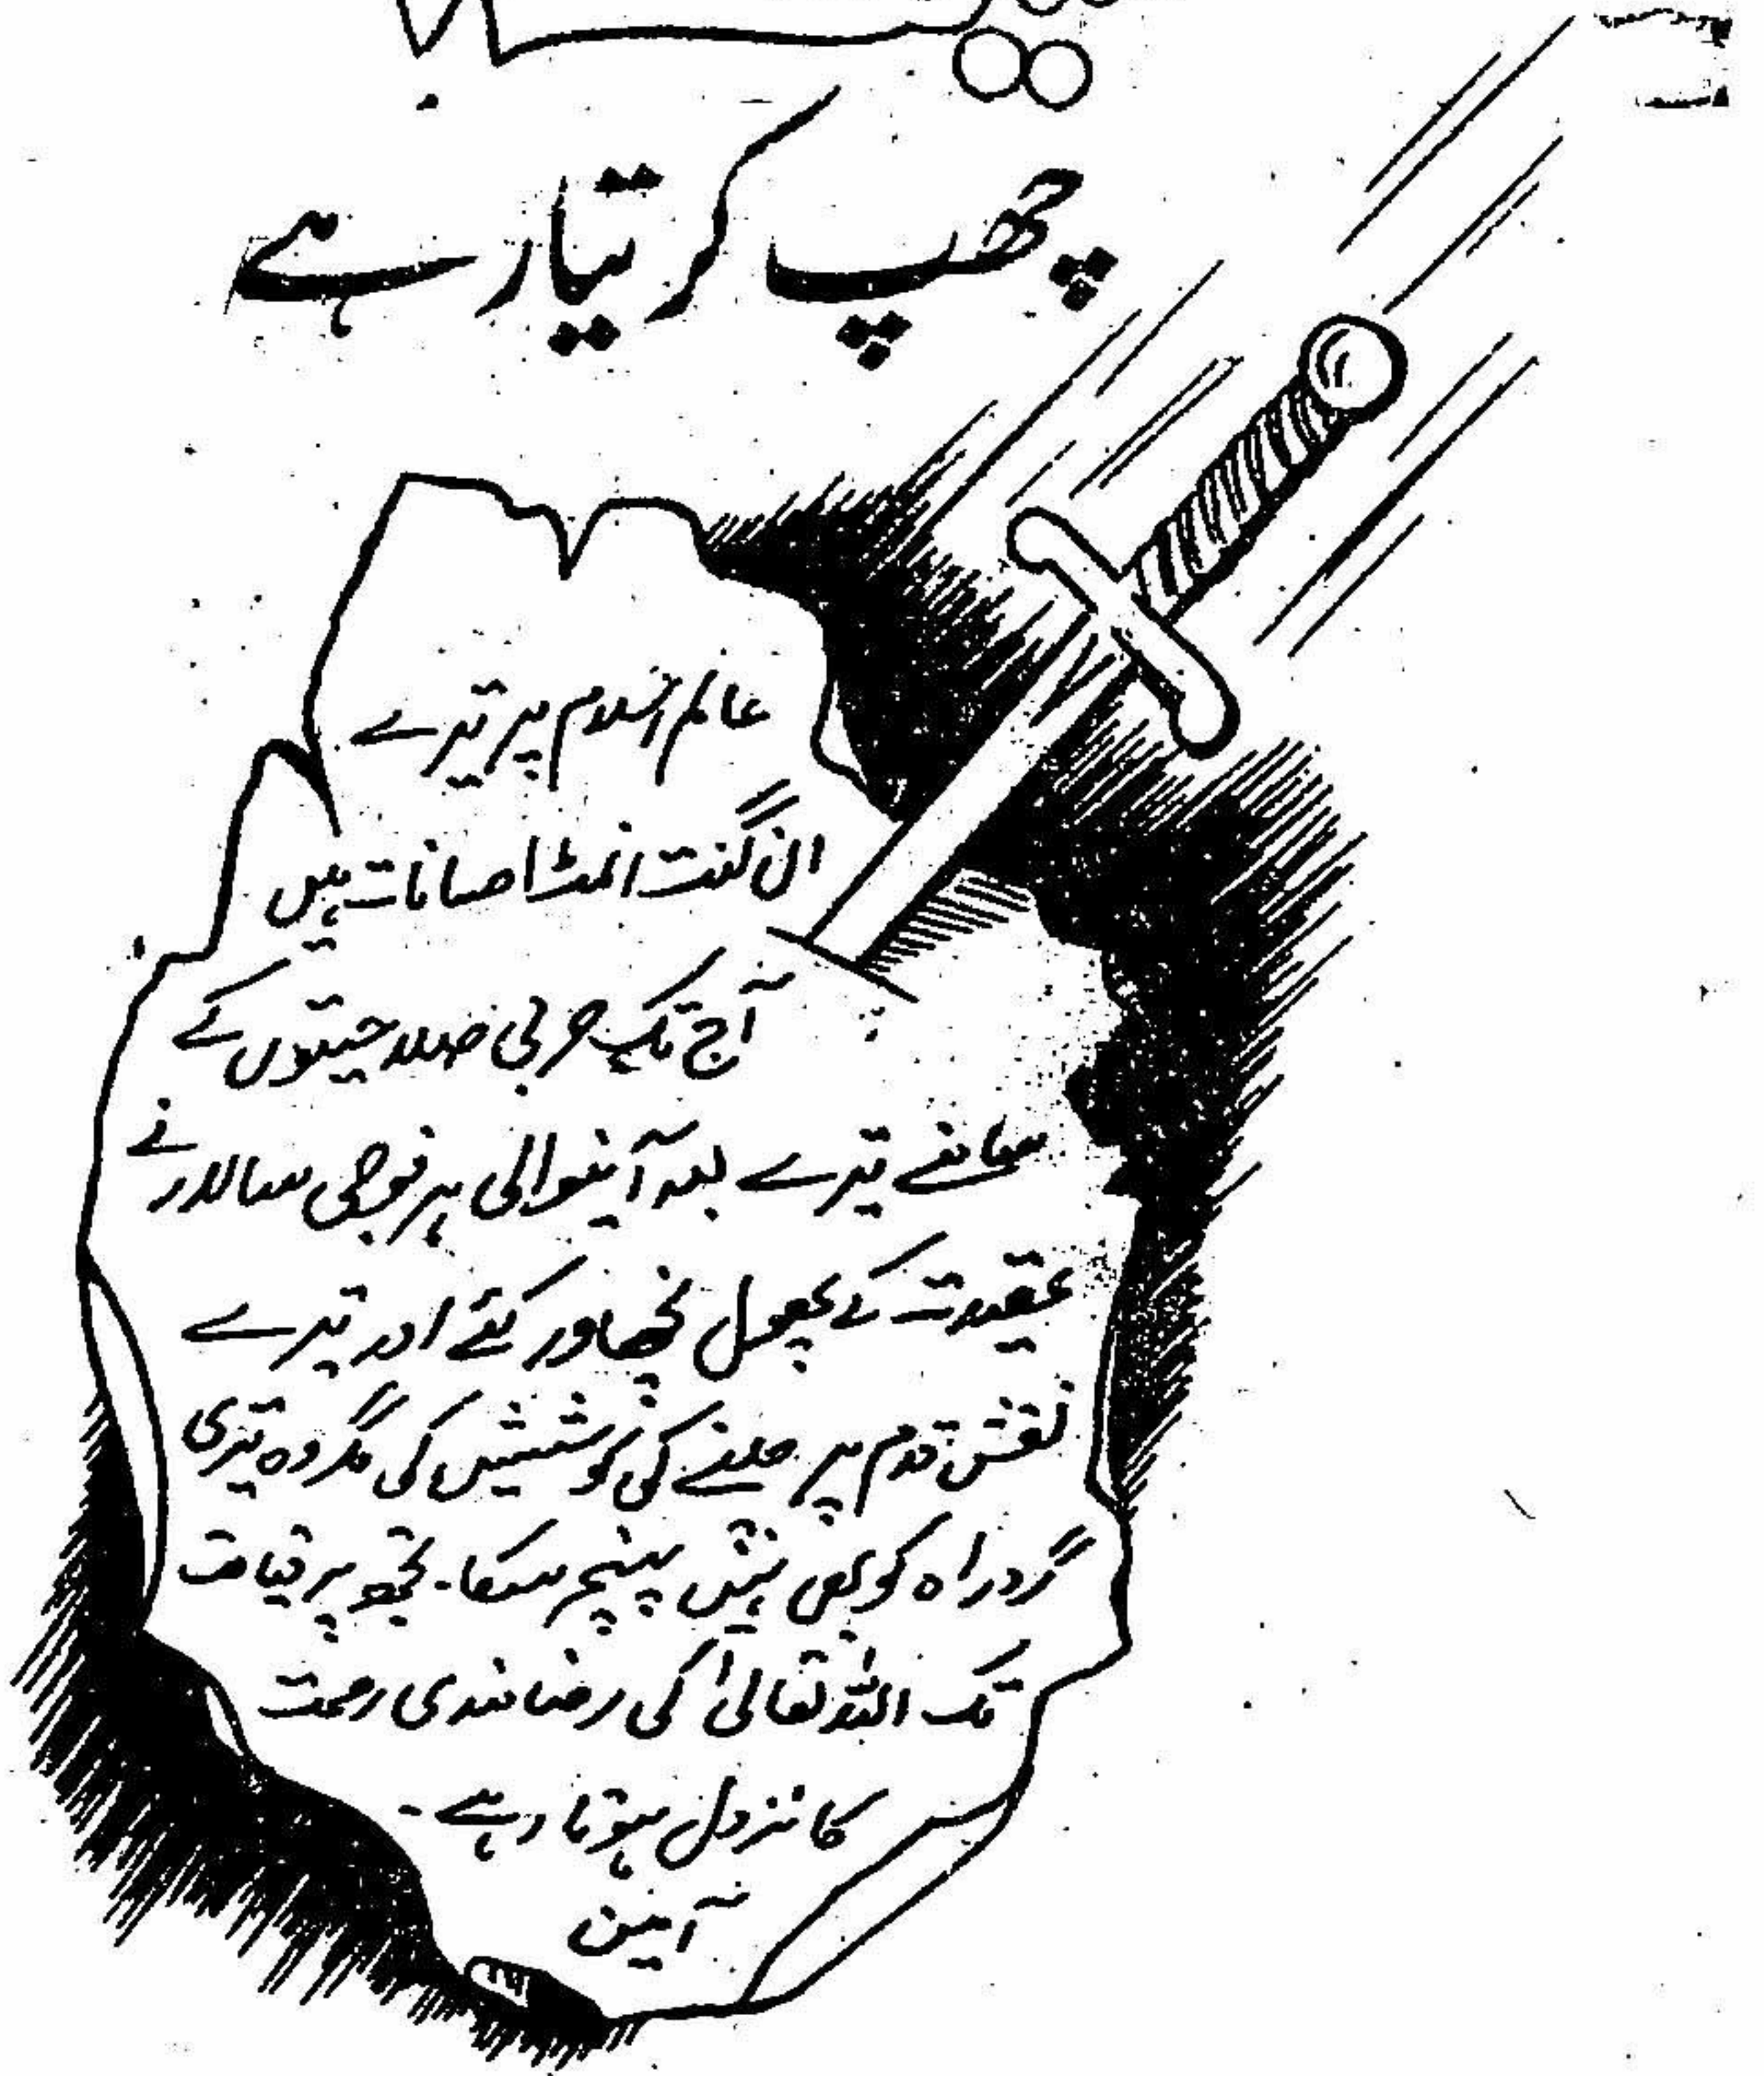 چھپ کر تیار ہے
عالم اسلام پر تیرے
ان گنت انمٹ احسانات ہیں
آج تک حربی صلاحیتوں کے
سامنے تیرے بعد آنیوالی ہر فوجی سالار نے
عقیدت کے پھول نچھاور کئے اور تیرے
نقش قدم پر چلنے کی کوشش کی مگر وہ تیری
گرد راہ کو بھی نہیں پہنچ سکا۔ تجھ پر قیامت
تک اللہ تعالیٰ کی رضا مندی رحمت
کا نزول ہوتا رہے۔
آمین